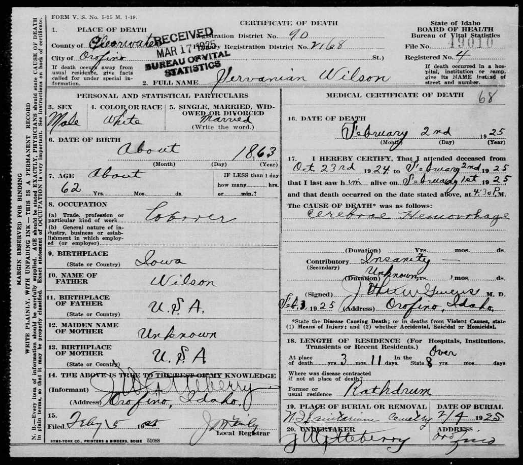 FORM V. S. No. 5-25 M. 1-19.
CERTIFICATE OF DEATH
State of Idaho
BOARD OF HEALTH
Bureau of Vital Statistics
1. PLACE OF DEATH
County of Clearwater
City of Orofino
If death occurs away from usual residence, give facts called for under special information.
RECEIVED
MAR 17 1925
BUREAU OF VITAL STATISTICS
Registration District No. 90
Registration District No. 2168
File No. 49010
Registered No. 4
If death occurred in a hospital, institution or camp, give its NAME instead of street and number.
2. FULL NAME Hervanian Wilson
68
PERSONAL AND STATISTICAL PARTICULARS
3. SEX Male
4. COLOR OR RACE White
5. SINGLE, MARRIED, WIDOWED OR DIVORCED Married
(Write the word.)
6. DATE OF BIRTH
About 1863
(Month) (Day) (Year)
7. AGE About
62
IF LESS than 1 day how many
yrs. mos. ds. hrs. or min.
8. OCCUPATION
(a) Trade, profession or particular kind of work Laborer
(b) General nature of industry, business or establishment in which employed (or employer)
9. BIRTHPLACE
(State or Country) Iowa
10. NAME OF FATHER Wilson
11. BIRTHPLACE OF FATHER
(State or Country) U.S.A.
12. MAIDEN NAME OF MOTHER Unknown
13. BIRTHPLACE OF MOTHER
(State or Country) U.S.A
14. THE ABOVE IS TRUE TO THE BEST OF MY KNOWLEDGE
(Informant)
(Address) Orofino, Idaho,
15.
Filed Feb 5 1925
Local Registrar
SYMS-YORK CO., PRINTERS & BINDERS, BOISE
MEDICAL CERTIFICATE OF DEATH
16. DATE OF DEATH
February 2nd 1925
(Month) (Day) (Year)
17. I HEREBY CERTIFY, That I attended deceased from
Oct 23rd 1924 to February 2nd 1925
that I last saw him alive on February 1st 1925
and that death occurred on the date stated above, at 4:30 P.M.
The CAUSE OF DEATH* was as follows:
Cerebral Hemorrhage
(Duration) yrs. mos. ds.
Contributory Insanity
(Secondary)
Unknown
(Duration) yrs. mos. ds.
(Signed) M. D.
Feb. 3, 1925 (Address) Orofino, Idaho,
*State the Disease Causing Death; or in deaths from Violent Causes, state (1) Means of Injury; and (2) whether Accidental, Suicidal or Homicidal.
18. LENGTH OF RESIDENCE (For Hospitals, Institutions, Transients or Recent Residents.)
At place of death yrs. 3 mos. 11 ds. In the State Over 8 yrs. mos. ds.
Where was disease contracted if not at place of death?
Former or usual residence Rathdrum
19. PLACE OF BURIAL OR REMOVAL
Cemetery
DATE OF BURIAL
2/4 1925
20. UNDERTAKER
ADDRESS
Orofino